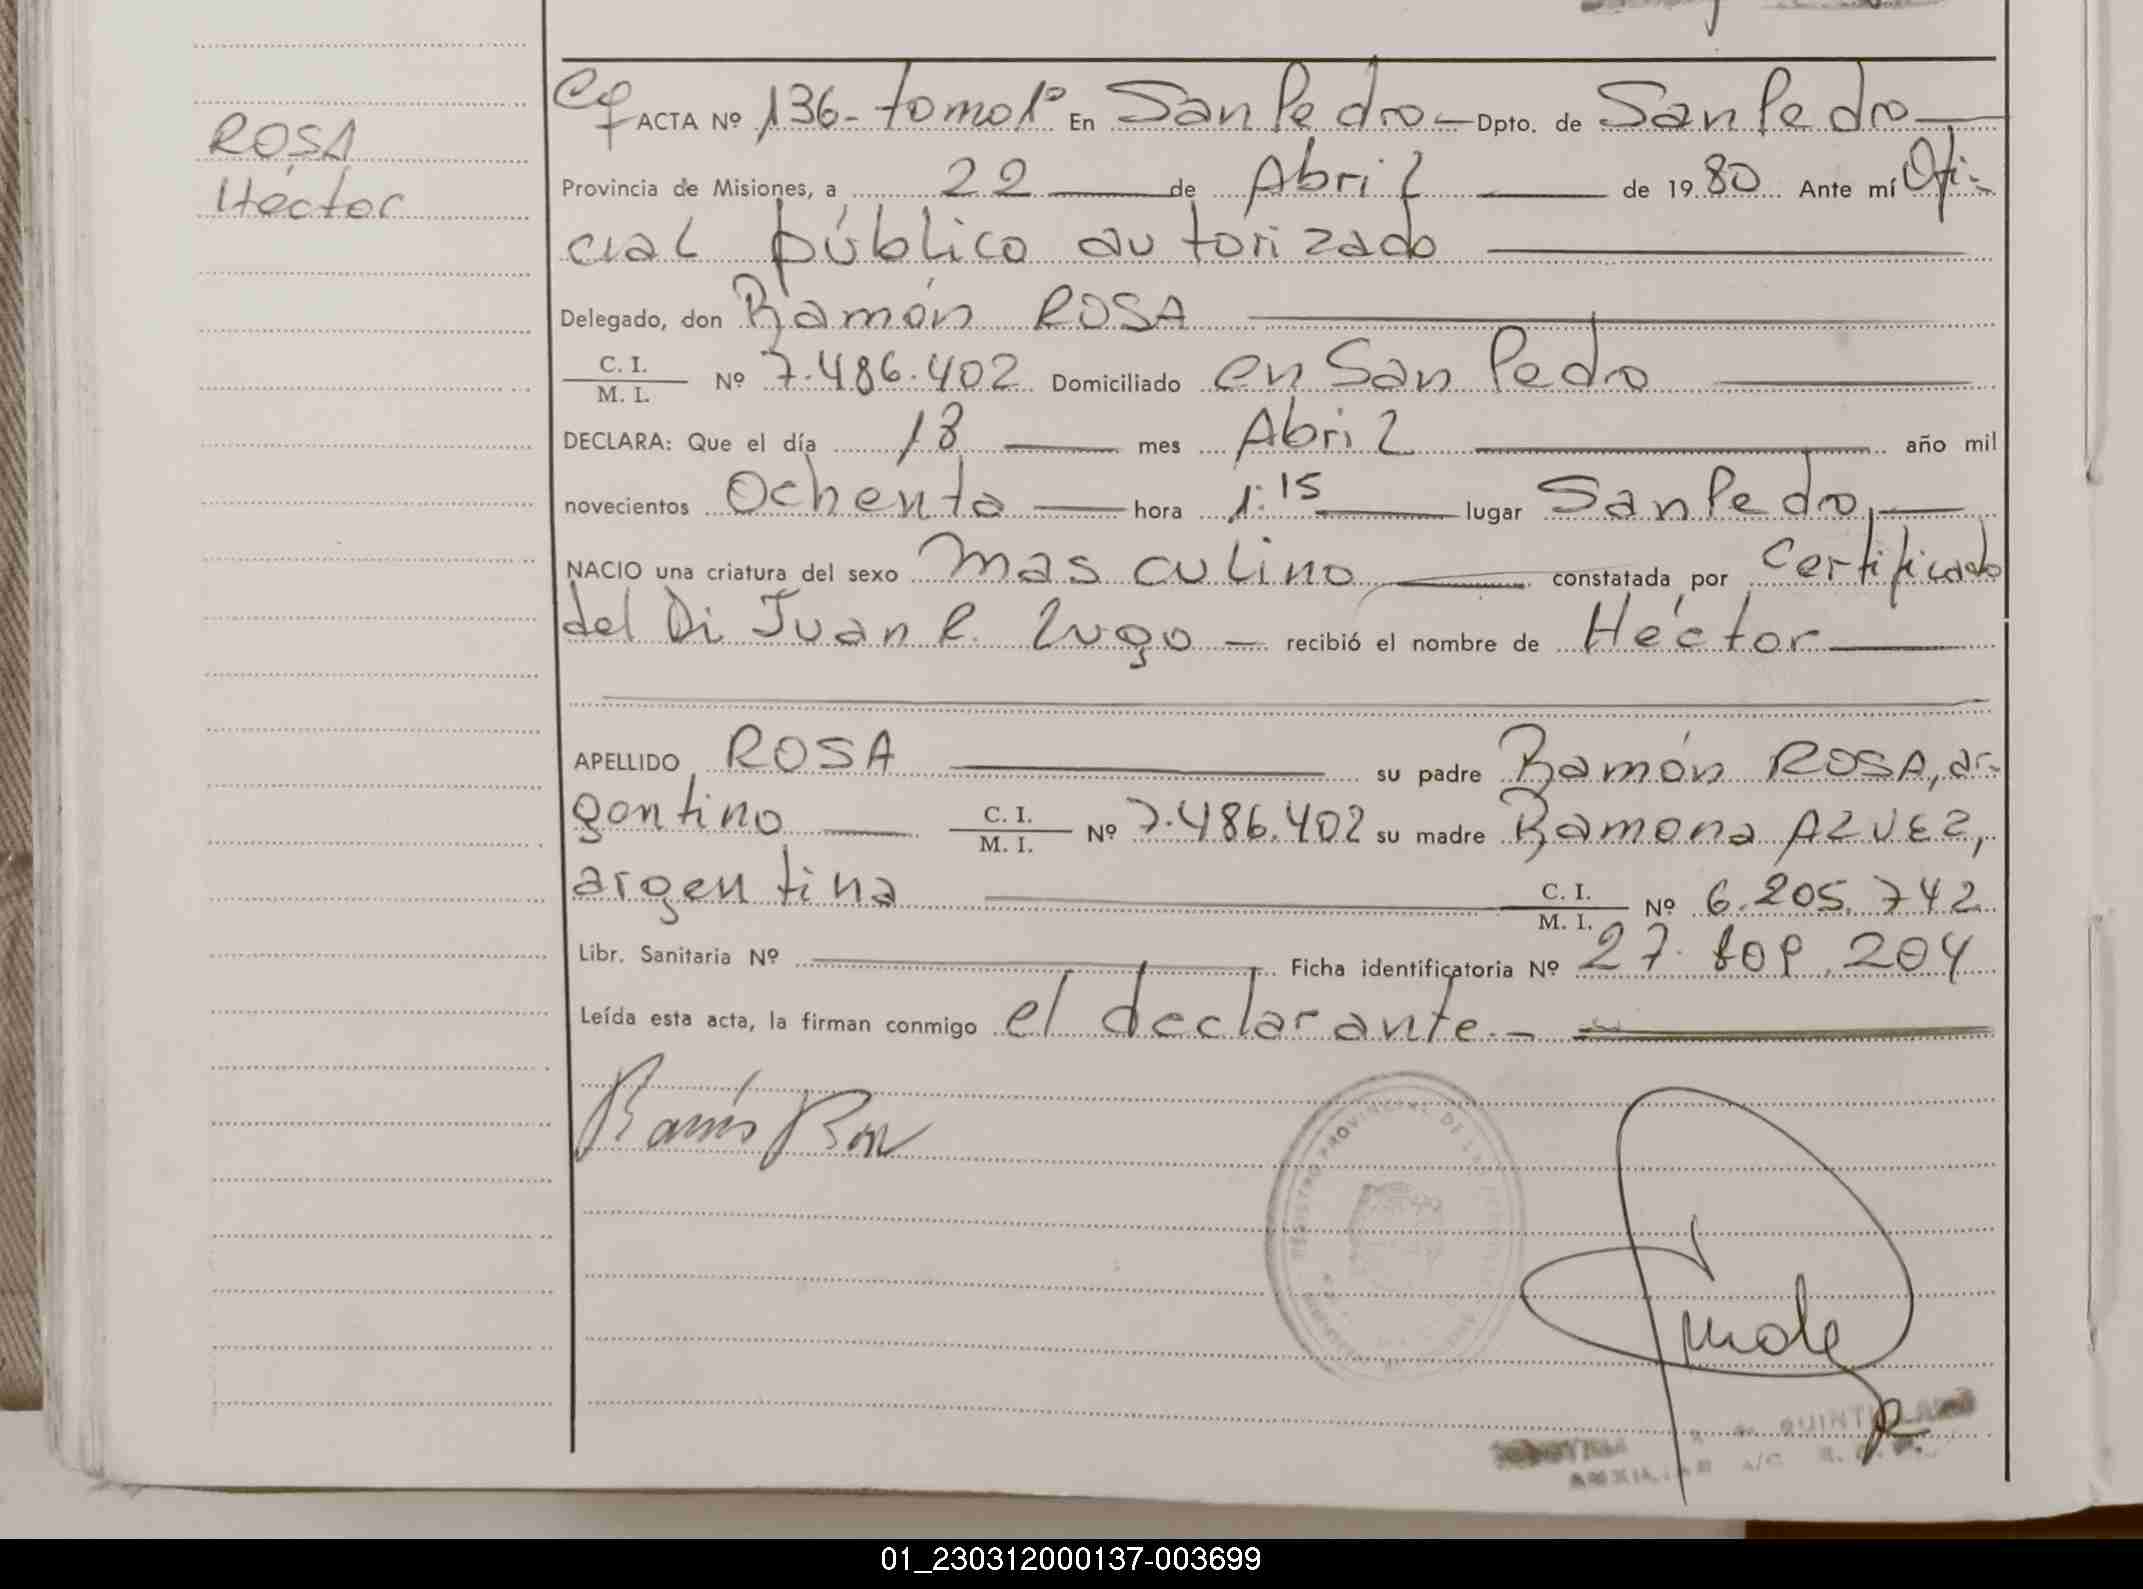 ROSA
Héctor
ACTA Nº 136- tomo 1º En San Pedro Dpto. de San Pedro
Provincia de Misiones, a 22 de Abril de 1980 Ante mí Ofi-
cial público autorizado
Delegado, don Ramón ROSA
C. I.
M. I.
Nº 7.486.402 Domiciliado en San Pedro
DECLARA: Que el día 18 mes Abril año mil
novecientos Ochenta hora 1:15 lugar San Pedro,
NACIO una criatura del sexo masculino constatada por certificado
del Juan R. Lugo recibió el nombre de Héctor
APELLIDO ROSA su padre Ramón ROSA, ar-
gentino C. I.
M. I. Nº 7.486.402 su madre Ramona AZVEZ,
argentina C. I.
M. I. Nº 6.205.742
Libr. Sanitaria Nº Ficha identificatoria Nº 27. 204
Leída esta acta, la firman conmigo el declarante.-
REGISTRO PROVINCIAL DE LAS
01_230312000137-003699